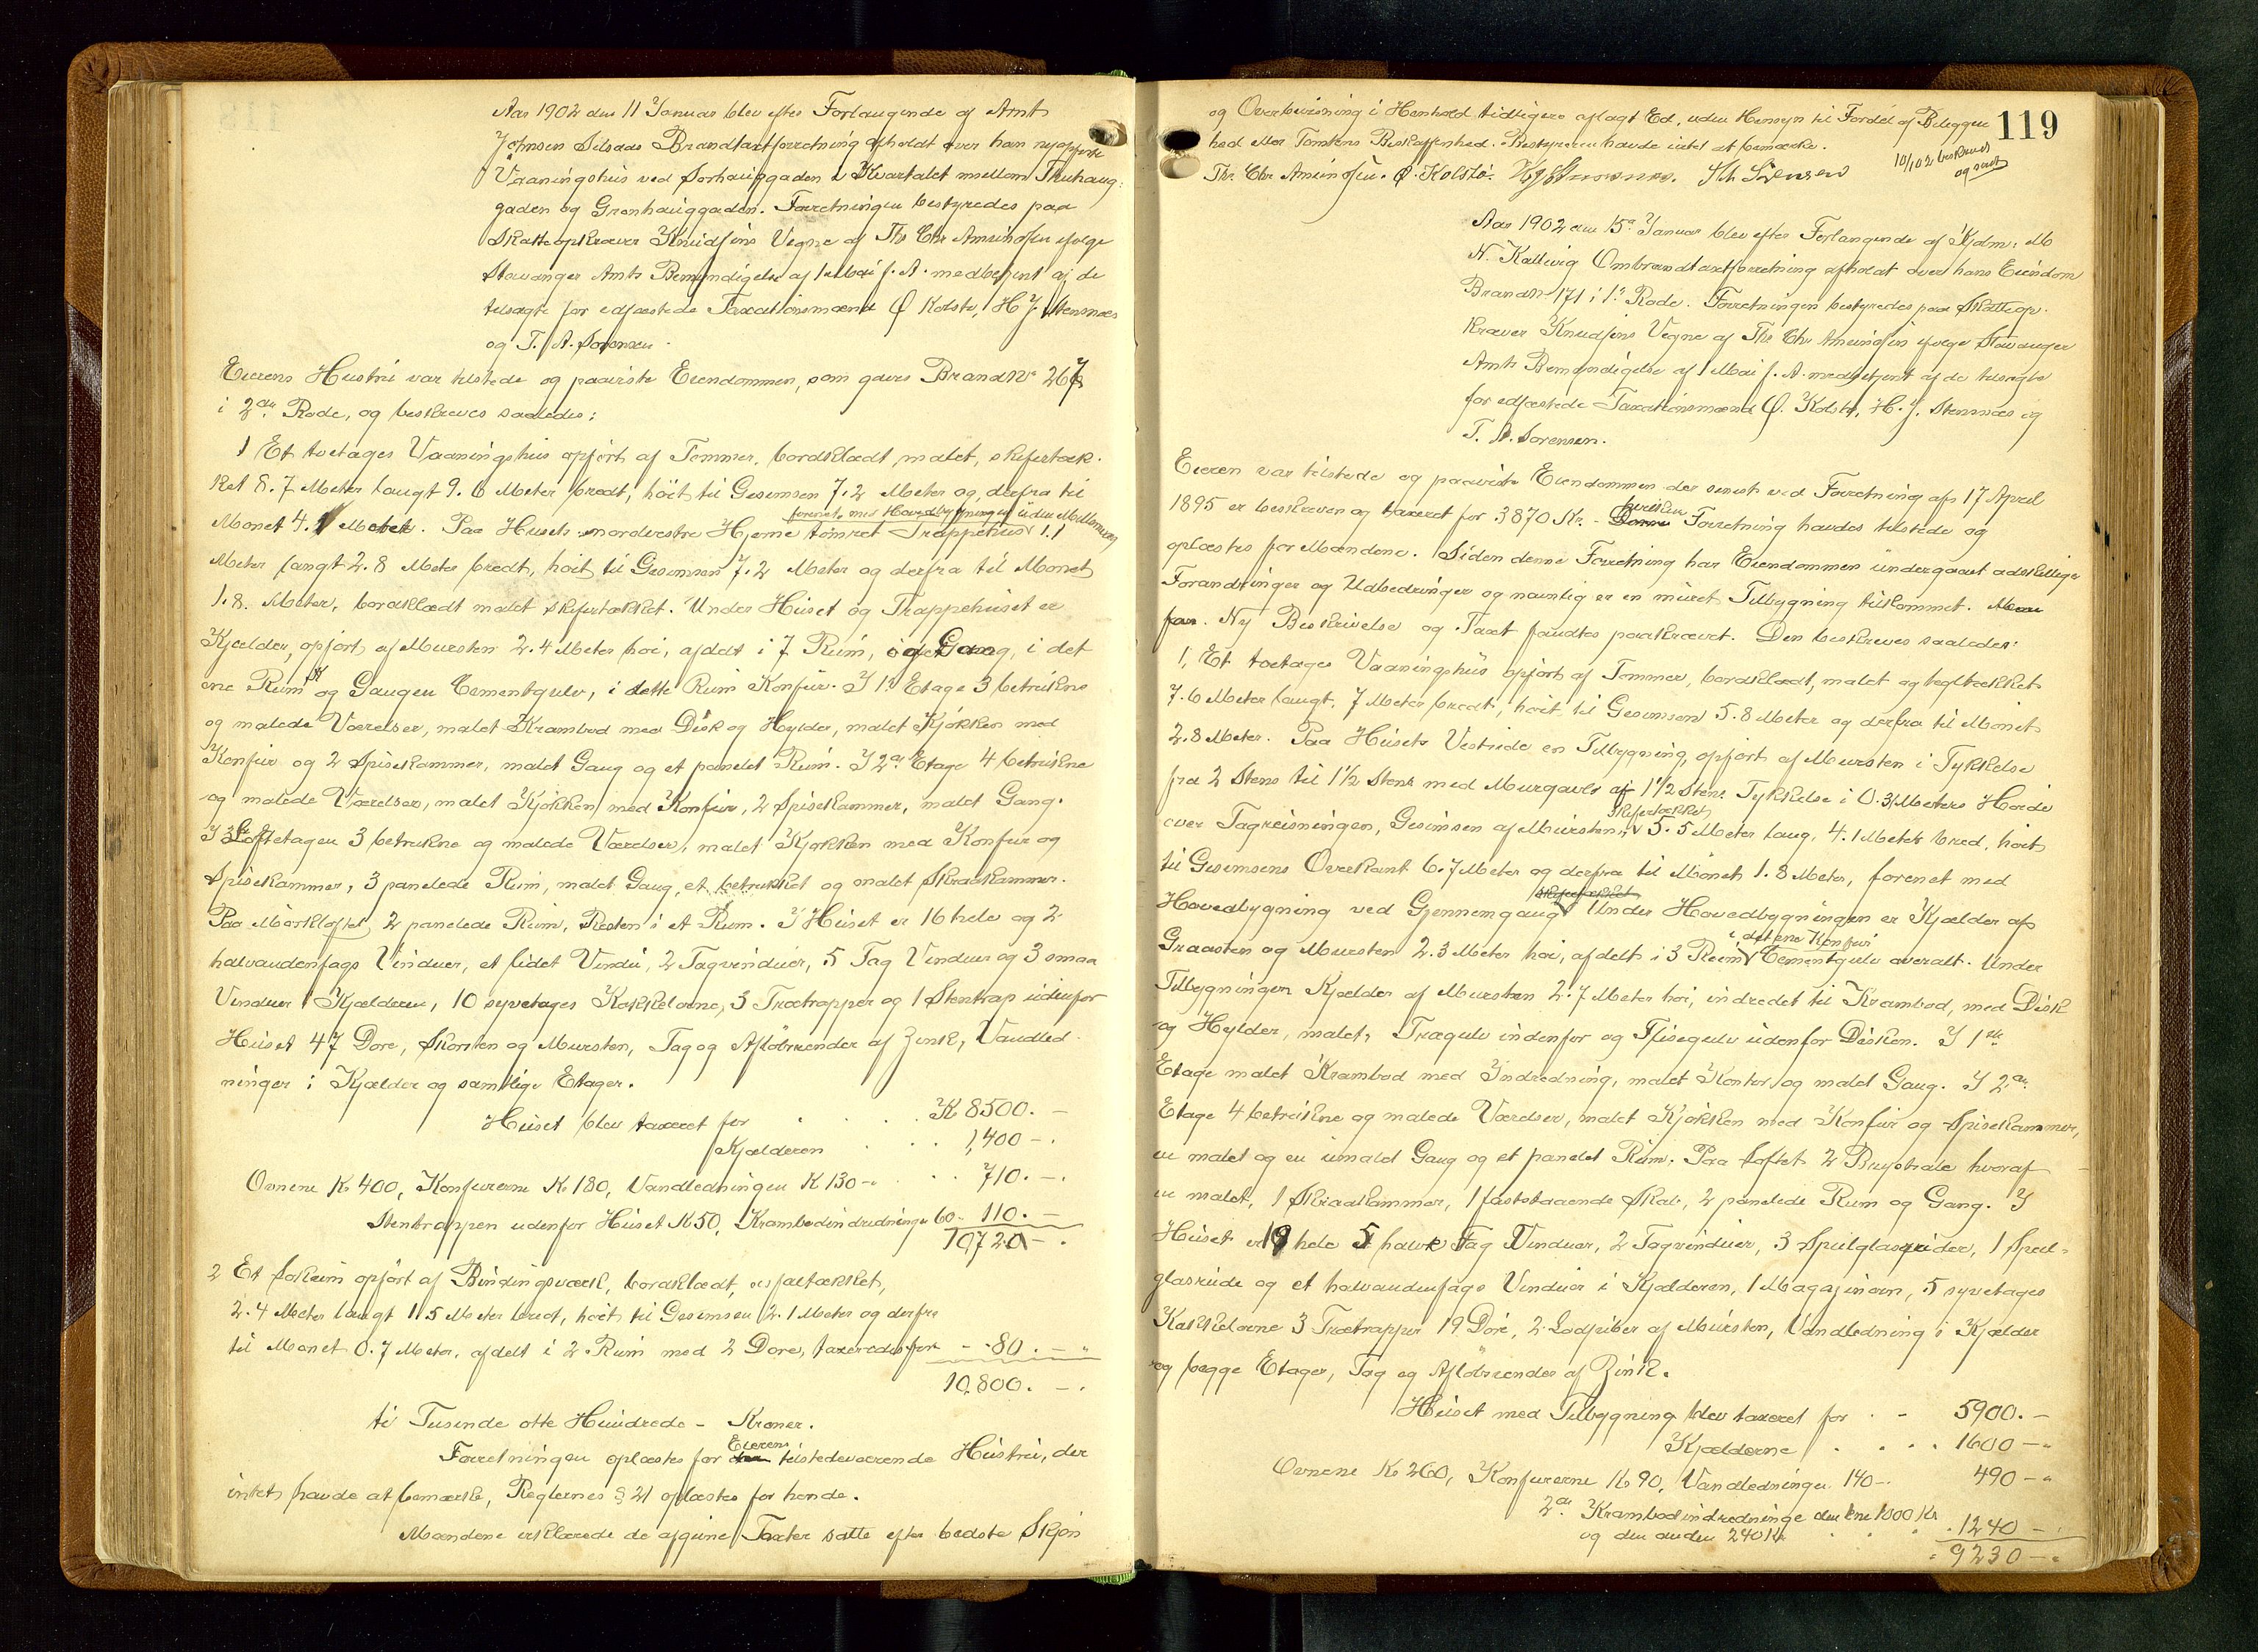 Aar 1902 den 11 Januar blev efter Forlangende af Amt
Johnsen Silsaas Brandtaxtforretning afholdt over hans nyopførte
Vaaningshus ved Sørhauggaden i Kvartalet mellem Thuhaug-
gaden og Grønhauggaden. Forretningen bestyredes paa
Skatteopkræver Knudsens Vegne af Ths Chr Amundsen ifølge
Stavanger Amts Bemyndigelse af 1 Mai f. A. medbetjent af de
tilsagte før edfæstede Taxationsmænd Ø Kolstø, H J Stensnæs
og T. A. Sørensen.
Eierens Hustru var tilstede og paaviste Eiendommen, som gaves Brand№ 267
i 2den Rode, og beskreves saaledes:
1 Et toetages Vaaningshus opført af Tømmer, bordklædt, malet, skifertæk-
ket 8.7 Meter langt 9.6 Meter bredt, høit til Gesimsen 7.2 Meter og derfra til
Mønet 4.1 Meter. Paa Husets nordvestre Hjørne tømret Trappehus forenet med Hovedbygningen uden Mellemvæg 1.1
Meter langt 2.8 Meter bredt, høit til Gesimsen 7.2 Meter og derfra til Mønet
1.8. Meter, bordklædt malet skifertækket. Under Huset og Trappehuset er
Kjælder, opført af Mursten 2.4 Meter høi, afdelt i 7 Rum, og Gang, i det
ene Rum og Gangen Cementgulv, i dette Rum Konfur. I 1ste Etage 3 betrukne
og malede Værelser, malet Krambod med Disk og Hylder, malet Kjøkken med
Konfur og 2 Spisekammer, malet Gang og et panelet Rum. I 2den Etage 4 betrukne
og malede Værelser, malet Kjøkken med Konfur, 2 Spisekammer, malet Gang.
I Loftetagen 3 betrukne og malede Værelser, malet Kjøkken med Konfur og
Spisekammer, 3 panelede Rum, malet Gang, et betrukket og malet Skraakammer.
Paa Mørkloftet 2 panelede Rum, Resten i et Rum. I Huset er 16 hele og 2
halvandenfags Vinduer, et lidet Vindu, 2 Tagvinduer, 5 Fag Vinduer og 3 smaa
Vinduer i Kjælderen, 10 syvetages Kakkelovne, 3 Trætrapper og 1 Stentrap udenfor
Huset 47 Døre, Skorsten og Mursten, Tag og Afløbsrender af Zink, Vandled-
ninger i Kjælder og samtlige Etager.
Huset blev taxeret for . . . K 8500. —
Kjælderen . . . 1,400 —.
Ovnene Kr 400, Konfurerne Kr 180, Vandledningen K 130 —. . . 710. —.
Stentrappen udenfor Huset K 50, Krambodindredninger 60 — 110. —
10720 —.
2 Et Skeium opført af Bindingsværk, bordklædt, asfaltækket,
2.4 Meter langt 1.5 Meter bredt, høit til Gesimsen 2.1 Meter og derfra
til Mønet 0.7 Meter, afdelt i 2 Rum med 2 Døre, taxeredes for — 80. —
10,800. —.
ti Tusinde otte Hundrede — Kroner.
Forretningen oplæstes for Eierens tilstedeværende Hustru, der
intet havde at bemærke, Reglernes § 21 oplæstes for hende.
Mændene erklærede de afgivne Taxter satte efter bedste Skjøn
119
og Overbevisning i Henhold tidligere aflagt Ed, uden Hensyn til Fordel af Beliggen
hed eller Tomtens Beskaffenhed. Bestyreren havde intet at bemærke.
Ths. Chr. Amundsen. Ø. Kolstø. H J Stensnæs. T A Sørensen
10/10 2 beskreves
og sendt
Aar 1902 den 15de Januar blev efter Forlangende af Kjdm. M
N. Kallevig Ombrandtaxtforretning afholdt over hans Eiendom
Brand№ 171 i 1ste Rode. Forretningen bestyredes paa Skatteop-
kræver Knudsens Vegne af Ths Chr Amundsen ifølge Stavanger
Amts Bemyndigelse af 1 Mai f. A. medbetjent af de tilsagte
før edfæstede Taxationsmænd Ø. Kolstø, H. J. Stensnæs og
T. A. Sørensen.
Eieren var tilstede og paaviste Eiendommen der senest ved Forretning af 17 April
1895 er beskreven og taxeret for 3870 Kr. — hvilken Forretning havdes tilstede og
oplæstes for Mændene. Siden denne Forretning har Eiendommen undergaaet adskillige
Forandringer og Udbedringer og navnlig er en muret Tilbygning tilkommet.
Ny Beskrivelse og Taxt fandtes paakrævet. Den beskreves saaledes:
1, Et toetages Vaaningshus opført af Tømmer, bordklædt, malet og tegltækket
7.6 Meter langt, 7 Meter bredt, høit til Gesimsen 5.8 Meter og derfra til Mønet
2.8 Meter. Paa Husets Vestside en Tilbygning, opført af Mursten i Tykkelse
fra 2 Stens til 1½ Stens med Murgavls af 1½ Stens Tykkelse i 0.3 Meters Høide
over Tagreisningen, Gesimsen af Mursten, skifertækket 5.5 Meter lang, 4.1 Meter bred, høit
til Gesimsens Overkant 6.7 Meter og derfra til Mønet 1.8 Meter, forenet med
Hovedbygning ved Gjennemgang skifertækket Under Hovedbygningen er Kjælder af
Graasten og Mursten 2.3 Meter høi, afdelt i 3 Rum i det ene Konfur Cementgulv overalt. Under
Tilbygningen Kjælder af Mursten 2.7 Meter høi, indredet til Krambod, med Disk
og Hylder, malet, Trægulv indenfor og Flisegulv udenfor Disken. I 1ste
Etage malet Krambod med Indredning, malet Kontor og malet Gang. I 2den
Etage 4 betrukne og malede Værelser, malet Kjøkken med Konfur og Spisekammer,
en malet og en umalet Gang og et panelet Rum. Paa Loftet 2 Brystrale hvoraf
en malet, 1 Skraakammer, 1 faststaaende Skab, 2 panelede Rum og Gang. I
Huset er 19 hele 5 halve Fag Vinduer, 2 Tagvinduer, 3 Speilglasruder, 1 Speil-
glasrude og et halvandenfags Vinduer i Kjælderen, 1 Magazinovn, 5 syvetages
Kakkelovne 3 Trætrapper 19 Døre, 2 Lodpiber af Mursten, Vandledning i Kjælder
og begge Etager, Tag og Afløbsrender af Zink.
Huset med Tilbygning blev taxeret for . — 5900. —
Kjælderne . . . . 1600 —.
Ovnene Kr 260, Konfurerne Kr 90, Vandledningen 140 —. 490 —.
2de Krambodindredninge den ene 1000 Kr
og den anden 240 Kr . . . 1240 —
9230 —.